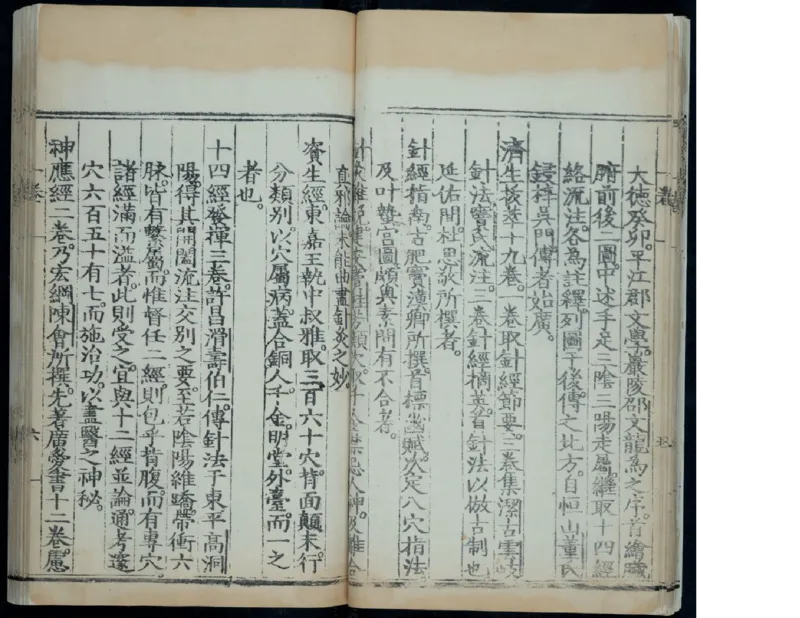 大德癸卯。平江郡文學。嚴陵邵文龍為之序。首繪臟
腑前後二圖。中述手足三陰三陽走屬。繼取十四經
絡流注。各為註釋。列圖于後。傳之北方。自恒山董氏
鋟梓吳門。傳者始廣。
濟生拔萃十九卷。一卷取針經節要。二卷集潔古雲岐
針法。竇氏流注。三卷針經摘英。首針法以倣古制也
延佑間。杜思敬所撰者。
針經指南。古肥竇漢卿所撰。首標幽賦。次定八穴指法
及叶蟄宮圖。頗與素問有不合者。
直邪論未能曲盡針灸之妙
資生經。東嘉王執中叔雅。取三百六十穴。背面顛末。行
分類別。以穴屬病。蓋合銅人千金。明堂。外臺。而一之
者也。
十四經發揮三卷。許昌滑壽伯仁。傳針法于東平高洞
陽。得其開闔流注交別之要。至若陰陽維蹻帶衝六
脉。皆有繫屬。而惟督任二經。則包乎背腹。而有專穴。
諸經滿而溢者。此則受之。宜與十二經並論。通考邃
穴六百五十有七。而施治功。以盡醫之神秘。
神應經二卷。乃宏綱陳會所撰。先著廣愛書十二卷。慮
六